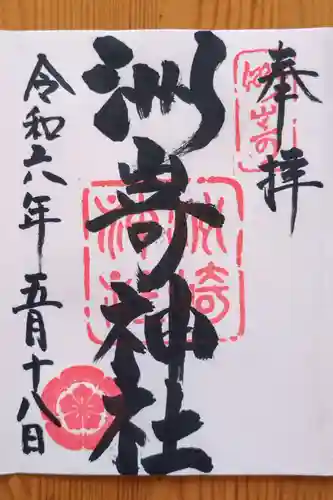 奉拝
洲嵜神社
令和六年五月十八日
洲崎神社